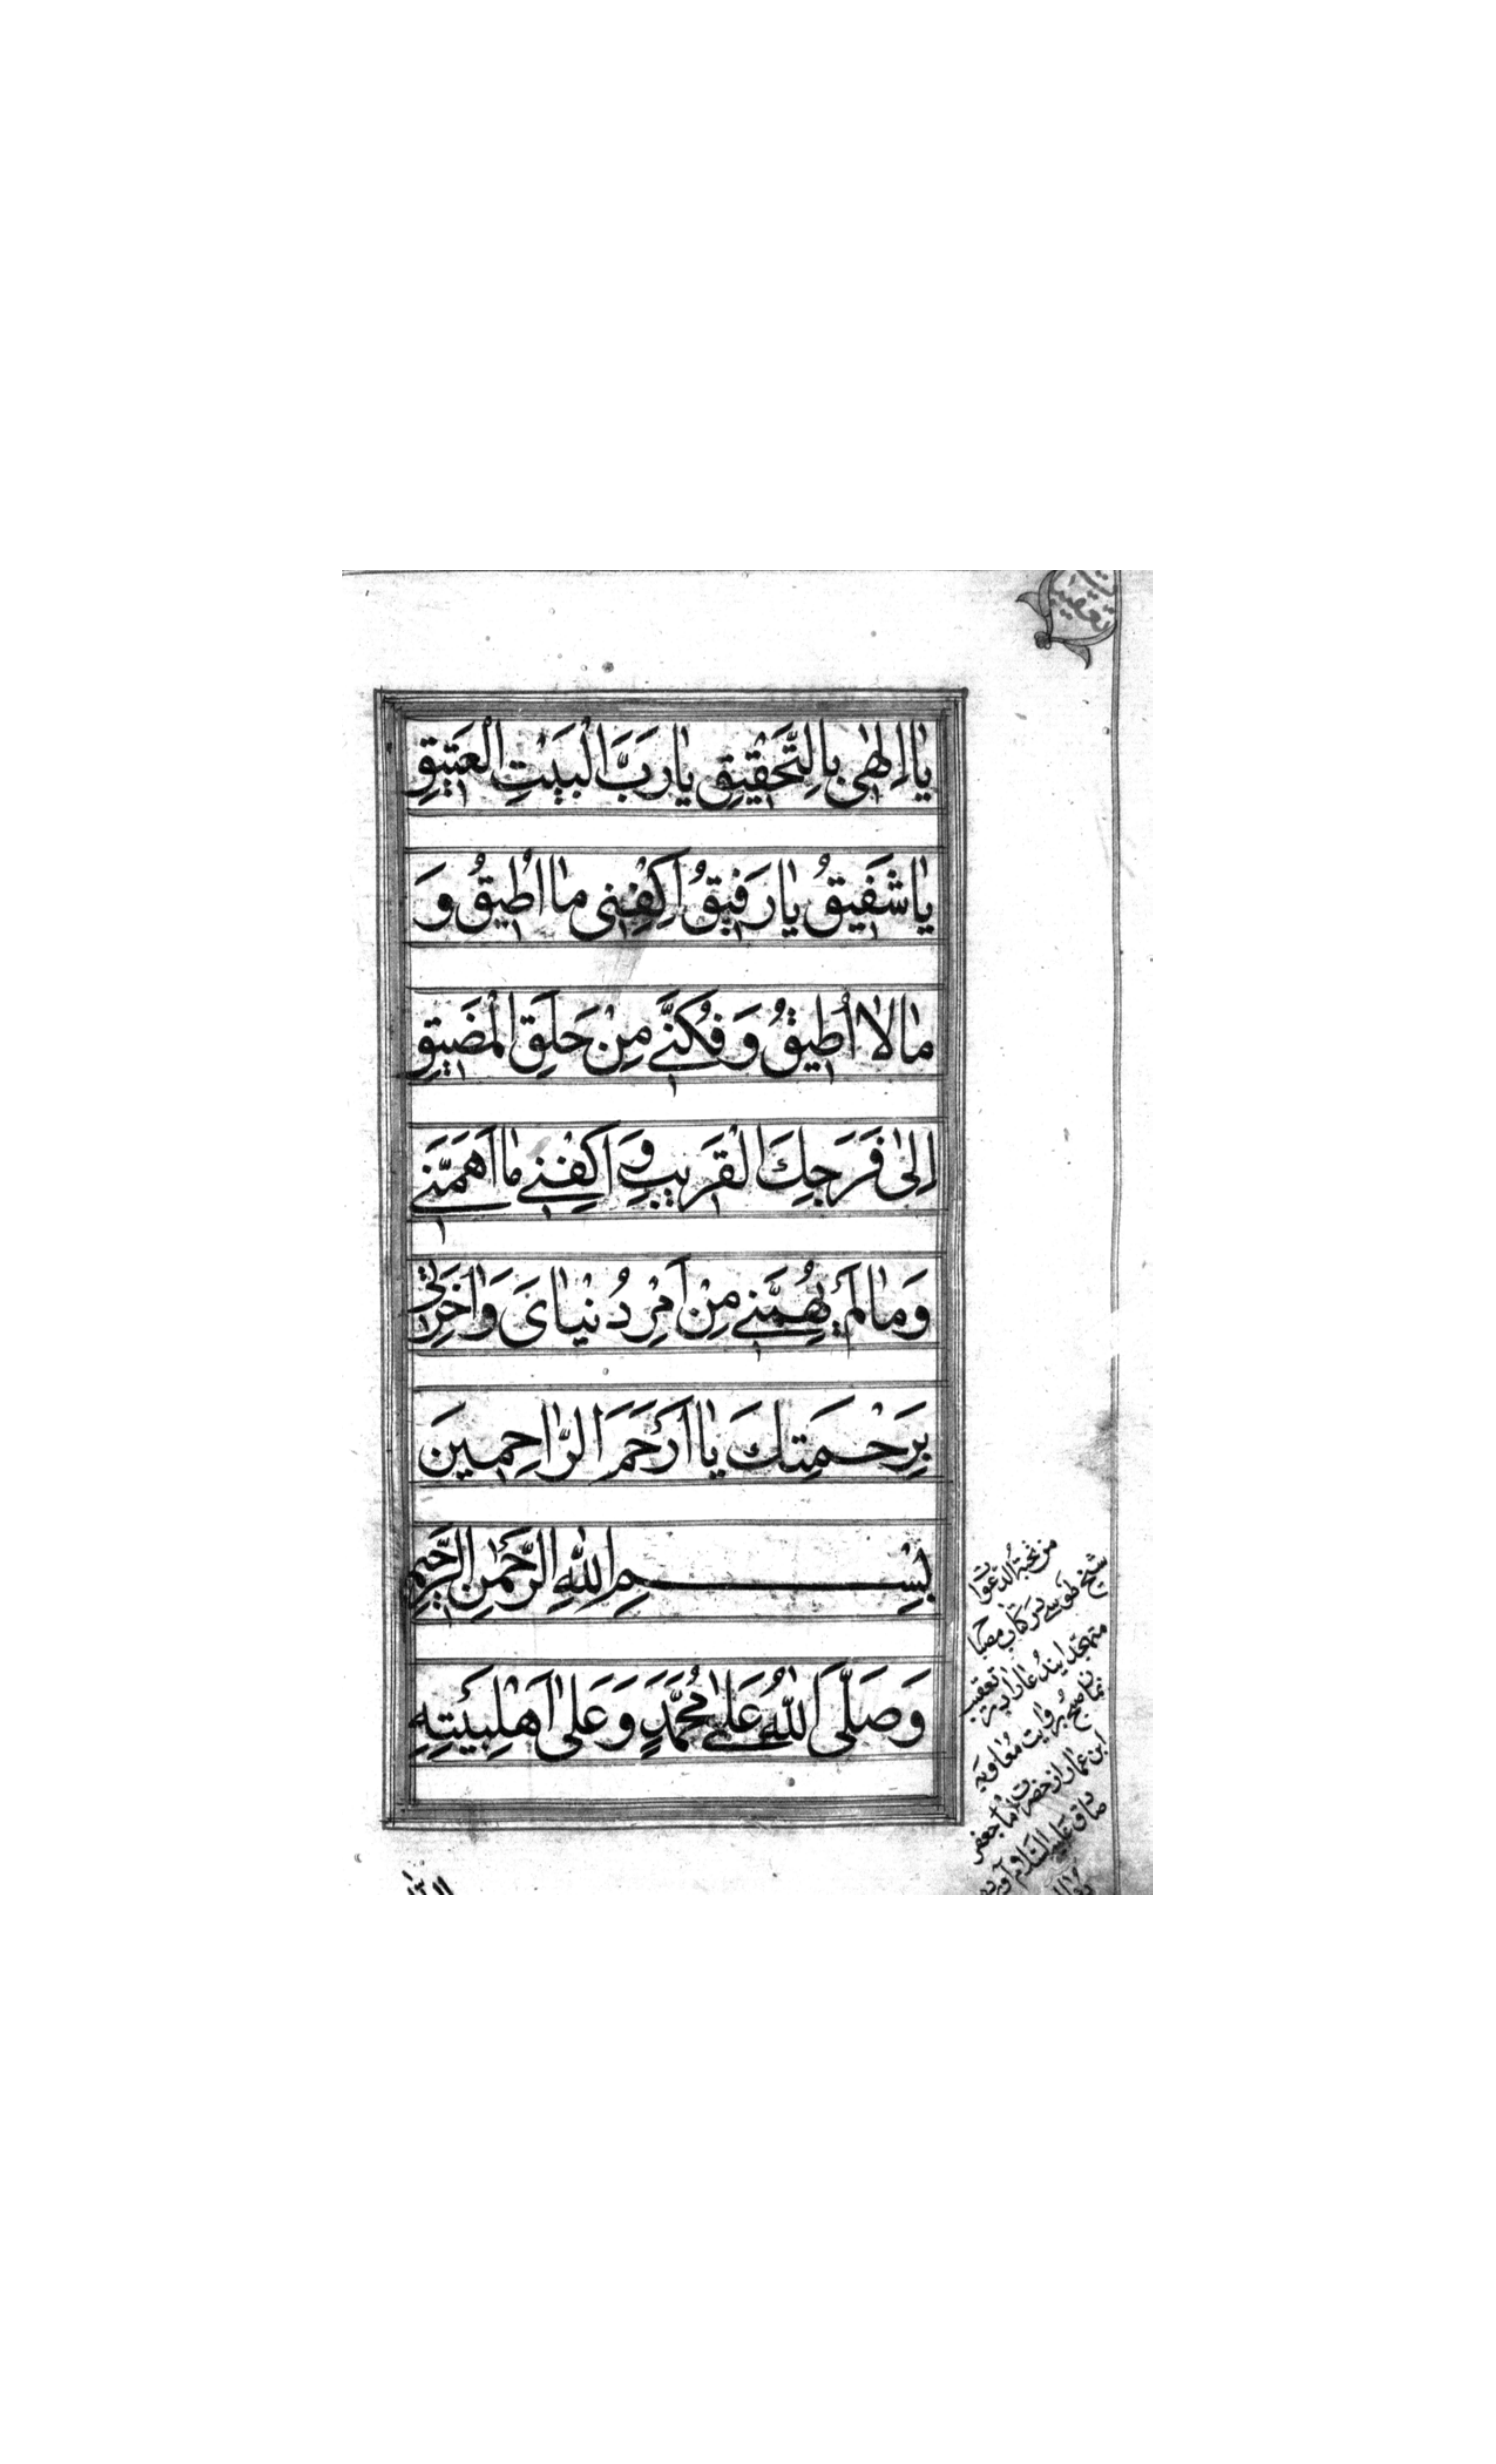 يٰا اِلٰهٰى بِالتَّحْقيٖقِ يٰا رَبَّ الْبَيْتِ الْعَتيٖقِ
يٰا شَفيٖقُ يٰا رَفيٖقُ اِكْفِنٖى مٰا اُطيٖقُ وَ
مٰا لٰا اُطيٖقُ وَ فُكَّنٖى مِنْ حَلَقِ الْمَضيٖقِ
اِلىٰ فَرَجِكَ الْقَريٖبِ وَ اكْفِنٖى مٰا اَهَمَّنٖى
وَ مٰا لَمْ يُهِمَّنٖى مِنْ اَمْرِ دُنْيٰاىَ وَ اٰخِرَتٖى
بِرَحْمَتِكَ يٰا اَرْحَمَ الرّٰاحِميٖنَ
بِسْمِ اللّٰهِ الرَّحْمٰنِ الرَّحيٖمِ
وَ صَلَّى اللّٰهُ عَلىٰ مُحَمَّدٍ وَ عَلىٰ اَهْلِ بَيْتِهِ
من نخبة الدعوات
شيخ طوسى در كتاب مصباح
متهجد ايندعا را در تعقيب
نماز صبح بروايت معاوية
ابن عمار از حضرت امام جعفر
صادق عليه السلام آورده